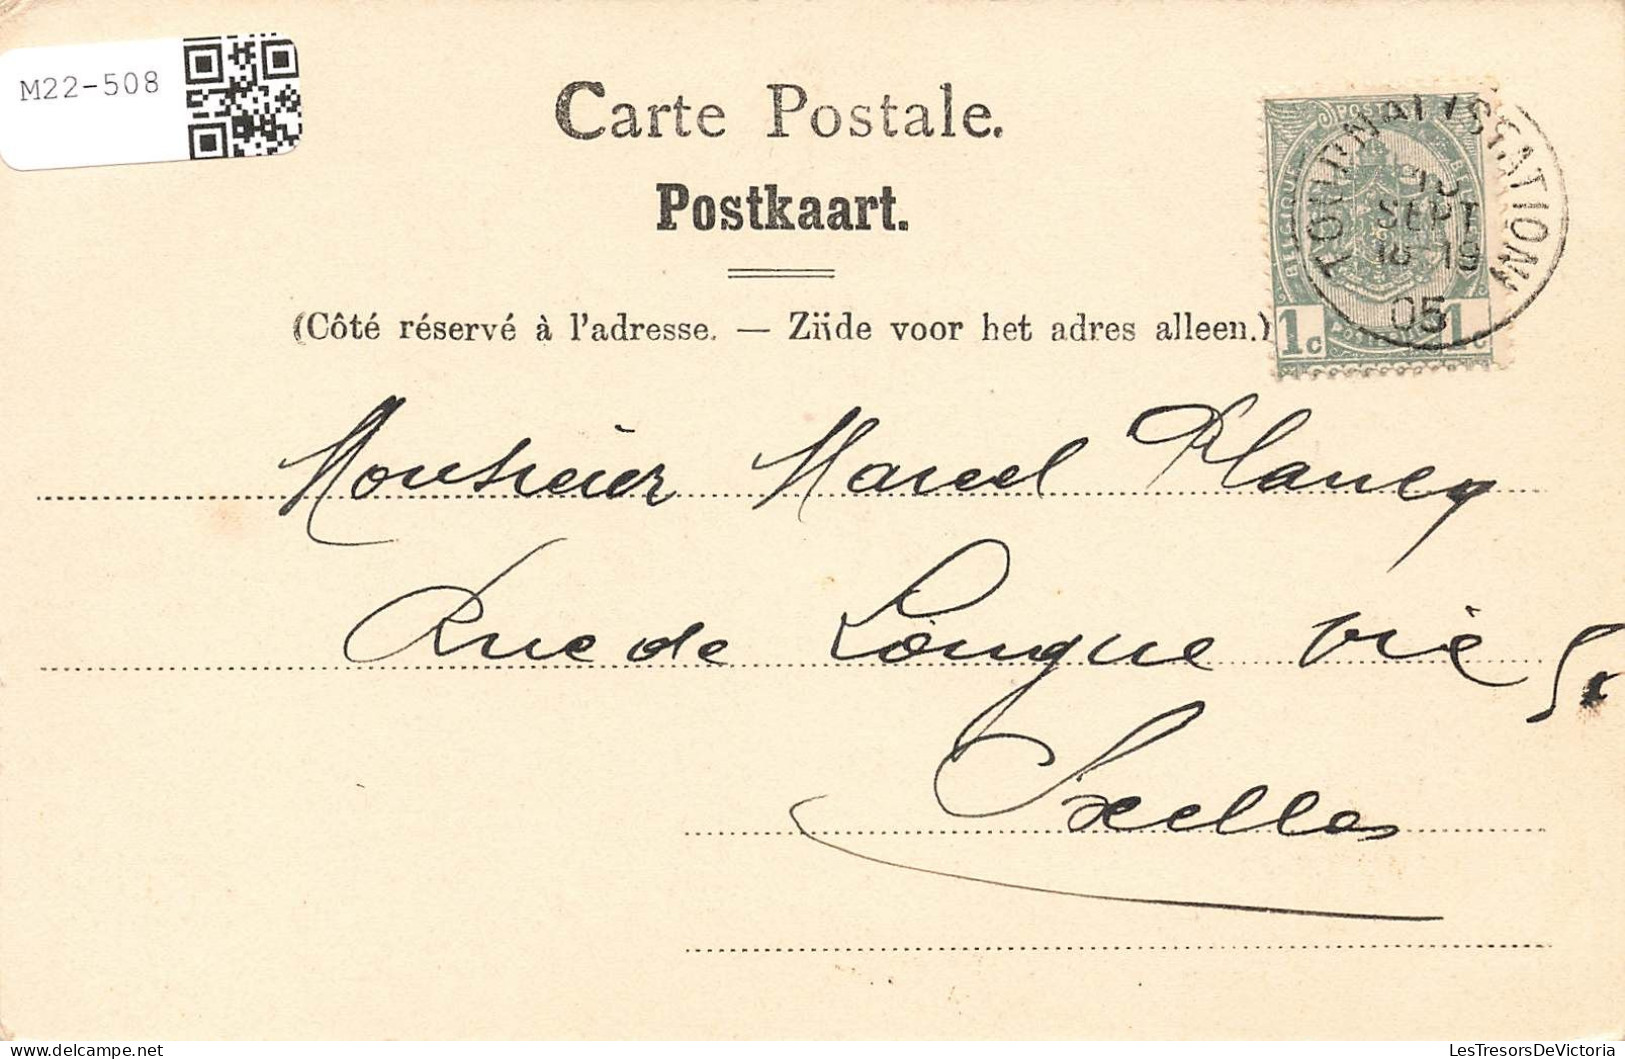 M22-508
Carte Postale.
Postkaart.
(Côté réservé à l'adresse. — Zijde voor het adres alleen.)
POSTES
BELGIQUE BELGIË
1c 1c
TOURNAI (STATION)
SEPT
18-19
05
Monsieur Marcel Plancq
Rue de Longue vie
Ixelles
delcampe.net
LesTresorsDeVictoria